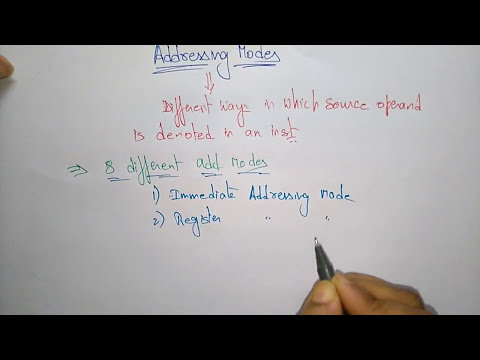 Addressing Modes
Different ways in which source operand
is denoted in an inst.
⇒ 8 different add Modes
1) Immediate Addressing Mode
2) Register " "